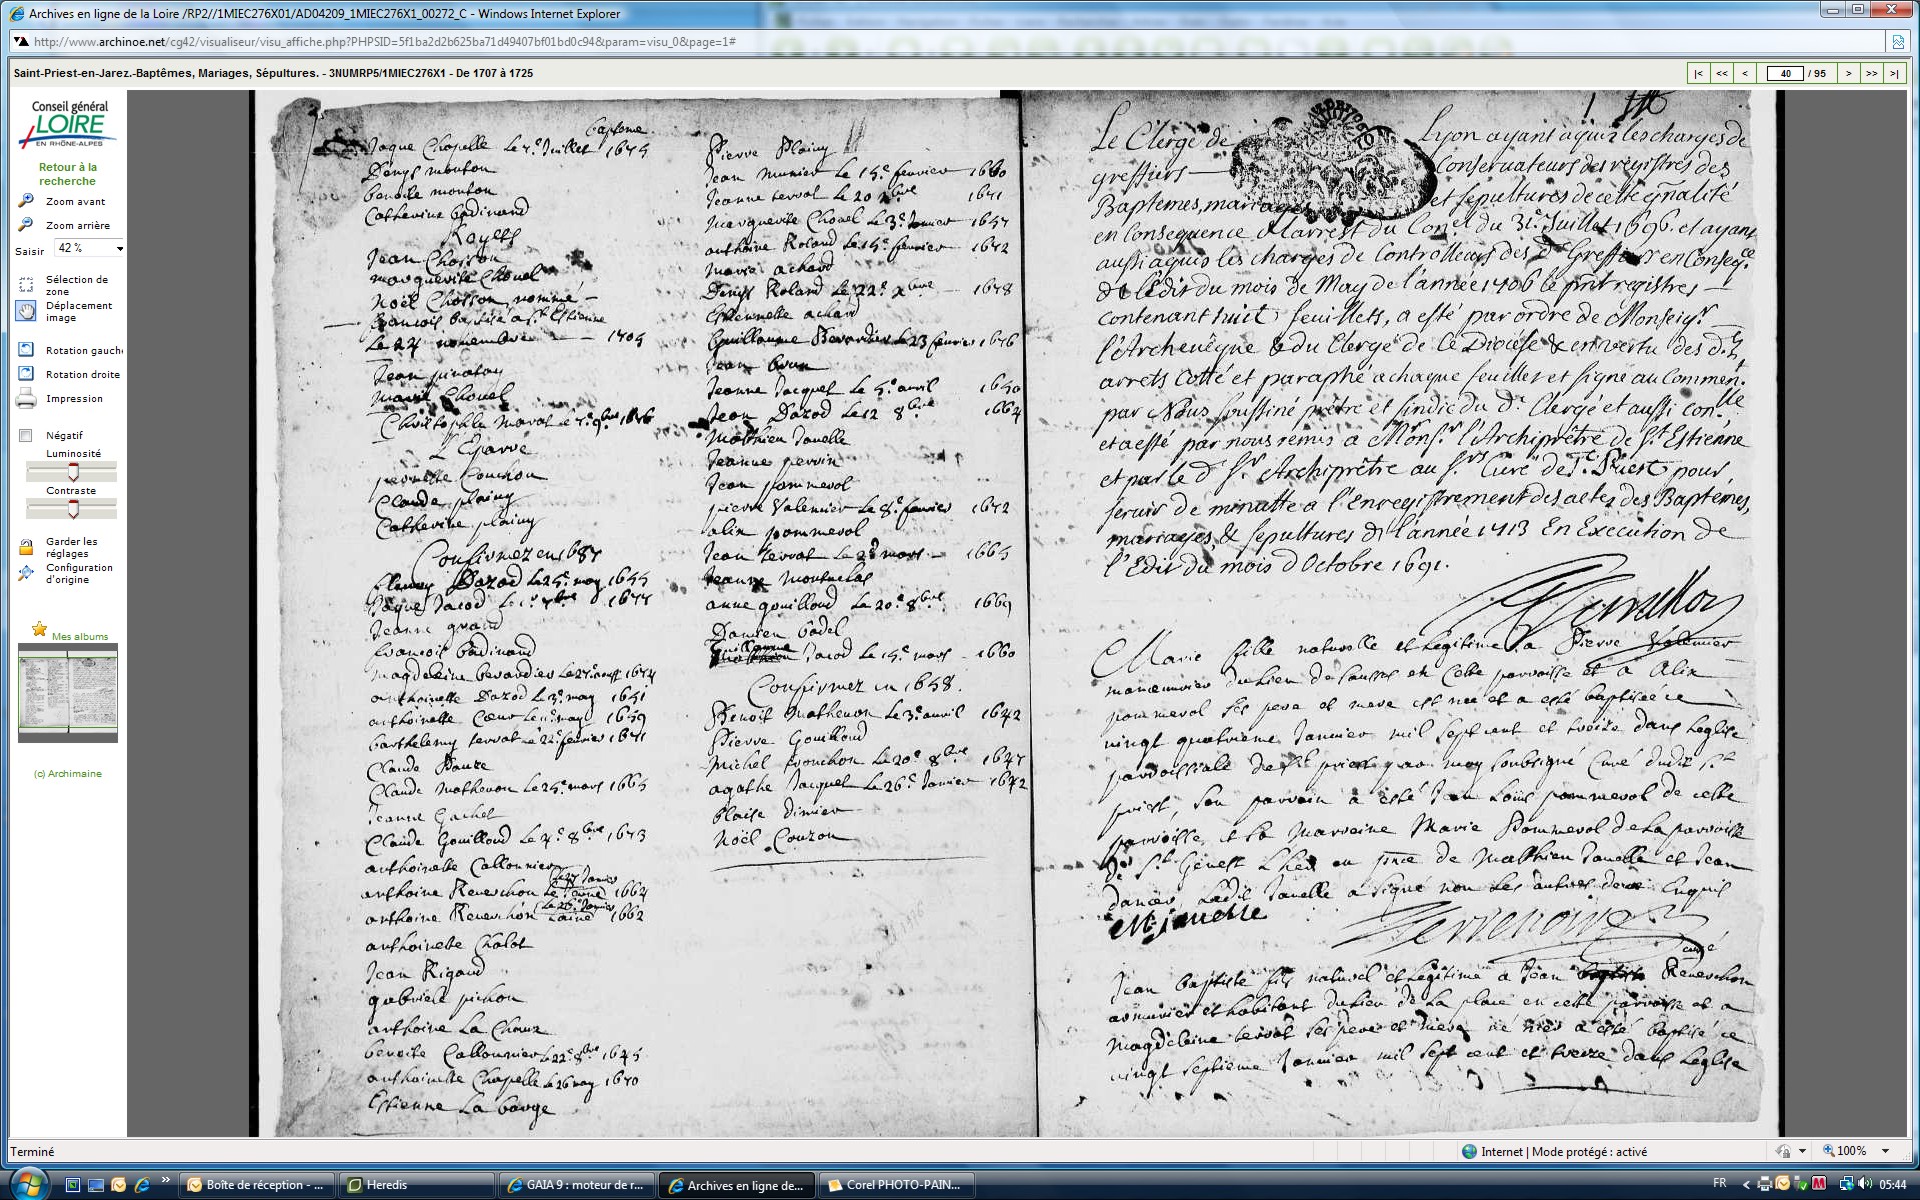 Archives en ligne de la Loire /RP2//1MIEC276X01/AD04209_1MIEC276X1_00272_C - Windows Internet Explorer
http://www.archinoe.net/cg42/visualiseur/visu_affiche.php?PHPSID=5f1ba2d2b625ba71d49407bf01bd0c94&param=visu_0&page=1#
Saint-Priest-en-Jarez.-Baptêmes, Mariages, Sépultures. - 3NUMRP5/1MIEC276X1 - De 1707 à 1725
|< << < 40 / 95 > >> >|
Conseil général
LOIRE
EN RHÔNE-ALPES
Retour à la
recherche
Zoom avant
Zoom arrière
Saisir 42 %
Sélection de
zone
Déplacement
image
Rotation gauch
Rotation droite
Impression
Négatif
Luminosité
Contraste
Garder les
réglages
Configuration
d'origine
Mes albums
(c) Archimaine
Jaque Chapelle le Juillet 1675
Denys mouton
benoite mouton
Catherine Gadinand
Jean Chosson
marguerite Chouel
Noël Chosson nommé
francois baptisé a St Estienne
Le 24 novembre 1705
Jean pinatay
marie Chouel
Christophle
pernette Couchon
Claude plainy
Catherine plainy
Confirmez en 1687
Jeanne grand
francois Gadinand
magdeleine berardier
anthoinette Dazod Le 3e may 1651
anthoinette Coeur may 1659
barthelemy terrat Le 22e fevrier 1671
Claude
Claude Mathevon Le 25e mars 1665
Jeanne Gachet
Claude Gouilloud Le 8bre 1673
anthoinette Callonnier
anthoine Reverchon 1664
anthoine Reverchon 1662
anthoinette Chalot
Jean Rigaud
gabriele pichon
anthoine La Chaux
benoite Callonnier Le 22e 8bre 1645
anthoinette Chapelle Le 26 may 1670
Estienne La barge
Pierre Plainy
Jean Munier Le 15e fevrier 1660
Jeanne terrat Le 20 1671
Marguerite Chouel Le 3e Janvier 1657
anthoine Roland Le 15e fevrier 1672
Marie achard
Denys Roland Le 22e xbre 1678
Estiennette achard
Guillaume Berardier Le 23 fevrier 1676
Jean brun
Jeanne Jacquet Le 5e avril 1650
Jean Dazod Le 12 8bre 1664
Matthieu Janelle
Jeanne perrin
Jean pommerol
pierre Valencier Le 8e fevrier 1672
alix pommerol
Jean terrat Le mars 1665
Jeanne
anne gouilloud Le 20e 8bre 1669
Damien badel
Guillaume Le 15e mars 1660
Confirmez en 1658.
Benoit Mathevon Le 3e avril 1642
Pierre Gouilloud
Michel Le 20e 8bre 1647
agathe Jacquet Le 26e Janvier 1642
blaise
Noël Couzon
Le Clergé de Lyon ayant aquis les charges de
greffiers Conservateurs des registres des
Baptemes, mariages et sepultures de cette Gnalité
en Consequence de l'arrest du Conel du 3e Juillet 1696. et ayant
aussi aquis les charges de Controlleurs des ds Greffiers en Conseqce
de l'Edit du mois de May de l'année 1706 le pnt registres
contenant huit feuillets, a esté par ordre de Monseigr
l'Archevêque & du Clergé de Ce Diocése & en vertu des ds
arrets Cotté et paraphé a chaque feuillet et signé au Commen.
par Nous soussiné prêtre et sindic du d. Clergé et aussi con.lle
et a esté par nous remis a Monsr l'Archiprêtre de St Estienne
et par le d Sr Archiprêtre au Sr Curé de St Priest pour
servir de minutte a l'Enregistrement des actes des Baptêmes,
mariages, & sepultures de l'année 1713 En Execution de
l'Edit du mois d'Octobre 1691.
Marie fille naturelle et legitime a Pierre Valencier
manoeuvrier du lieu de en cette parroisse et a Alix
pommerol ses pere et mere est née et a esté baptisée ce
vingt quatrieme Janvier mil sept cent et treize dans Leglise
parroissiale de St priest par moy soubsigné Curé dudit St
priest, son parrain a esté Jean Loüis pommerol de cette
parroisse et sa Marreine Marie Pommerol de La parroisse
de St Genest Lher en pnce de Matthieu Janelle et Jean
Ledit Janelle a signé non les autres deux Enquis
M. janelle
curé
Jean baptiste fils naturel et legitime a Jean Reverchon
armurier et habitant du lieu de La place en cette parroisse et a
Magdeleine terrat ses pere et mere né hier a esté baptisé ce
vingt septieme Janvier mil sept cent et treize dans Leglise
Terminé
Internet | Mode protégé : activé
100%
Boîte de réception - ...
Heredis
GAIA 9 : moteur de r...
Archives en ligne de...
Corel PHOTO-PAIN...
FR
05:44